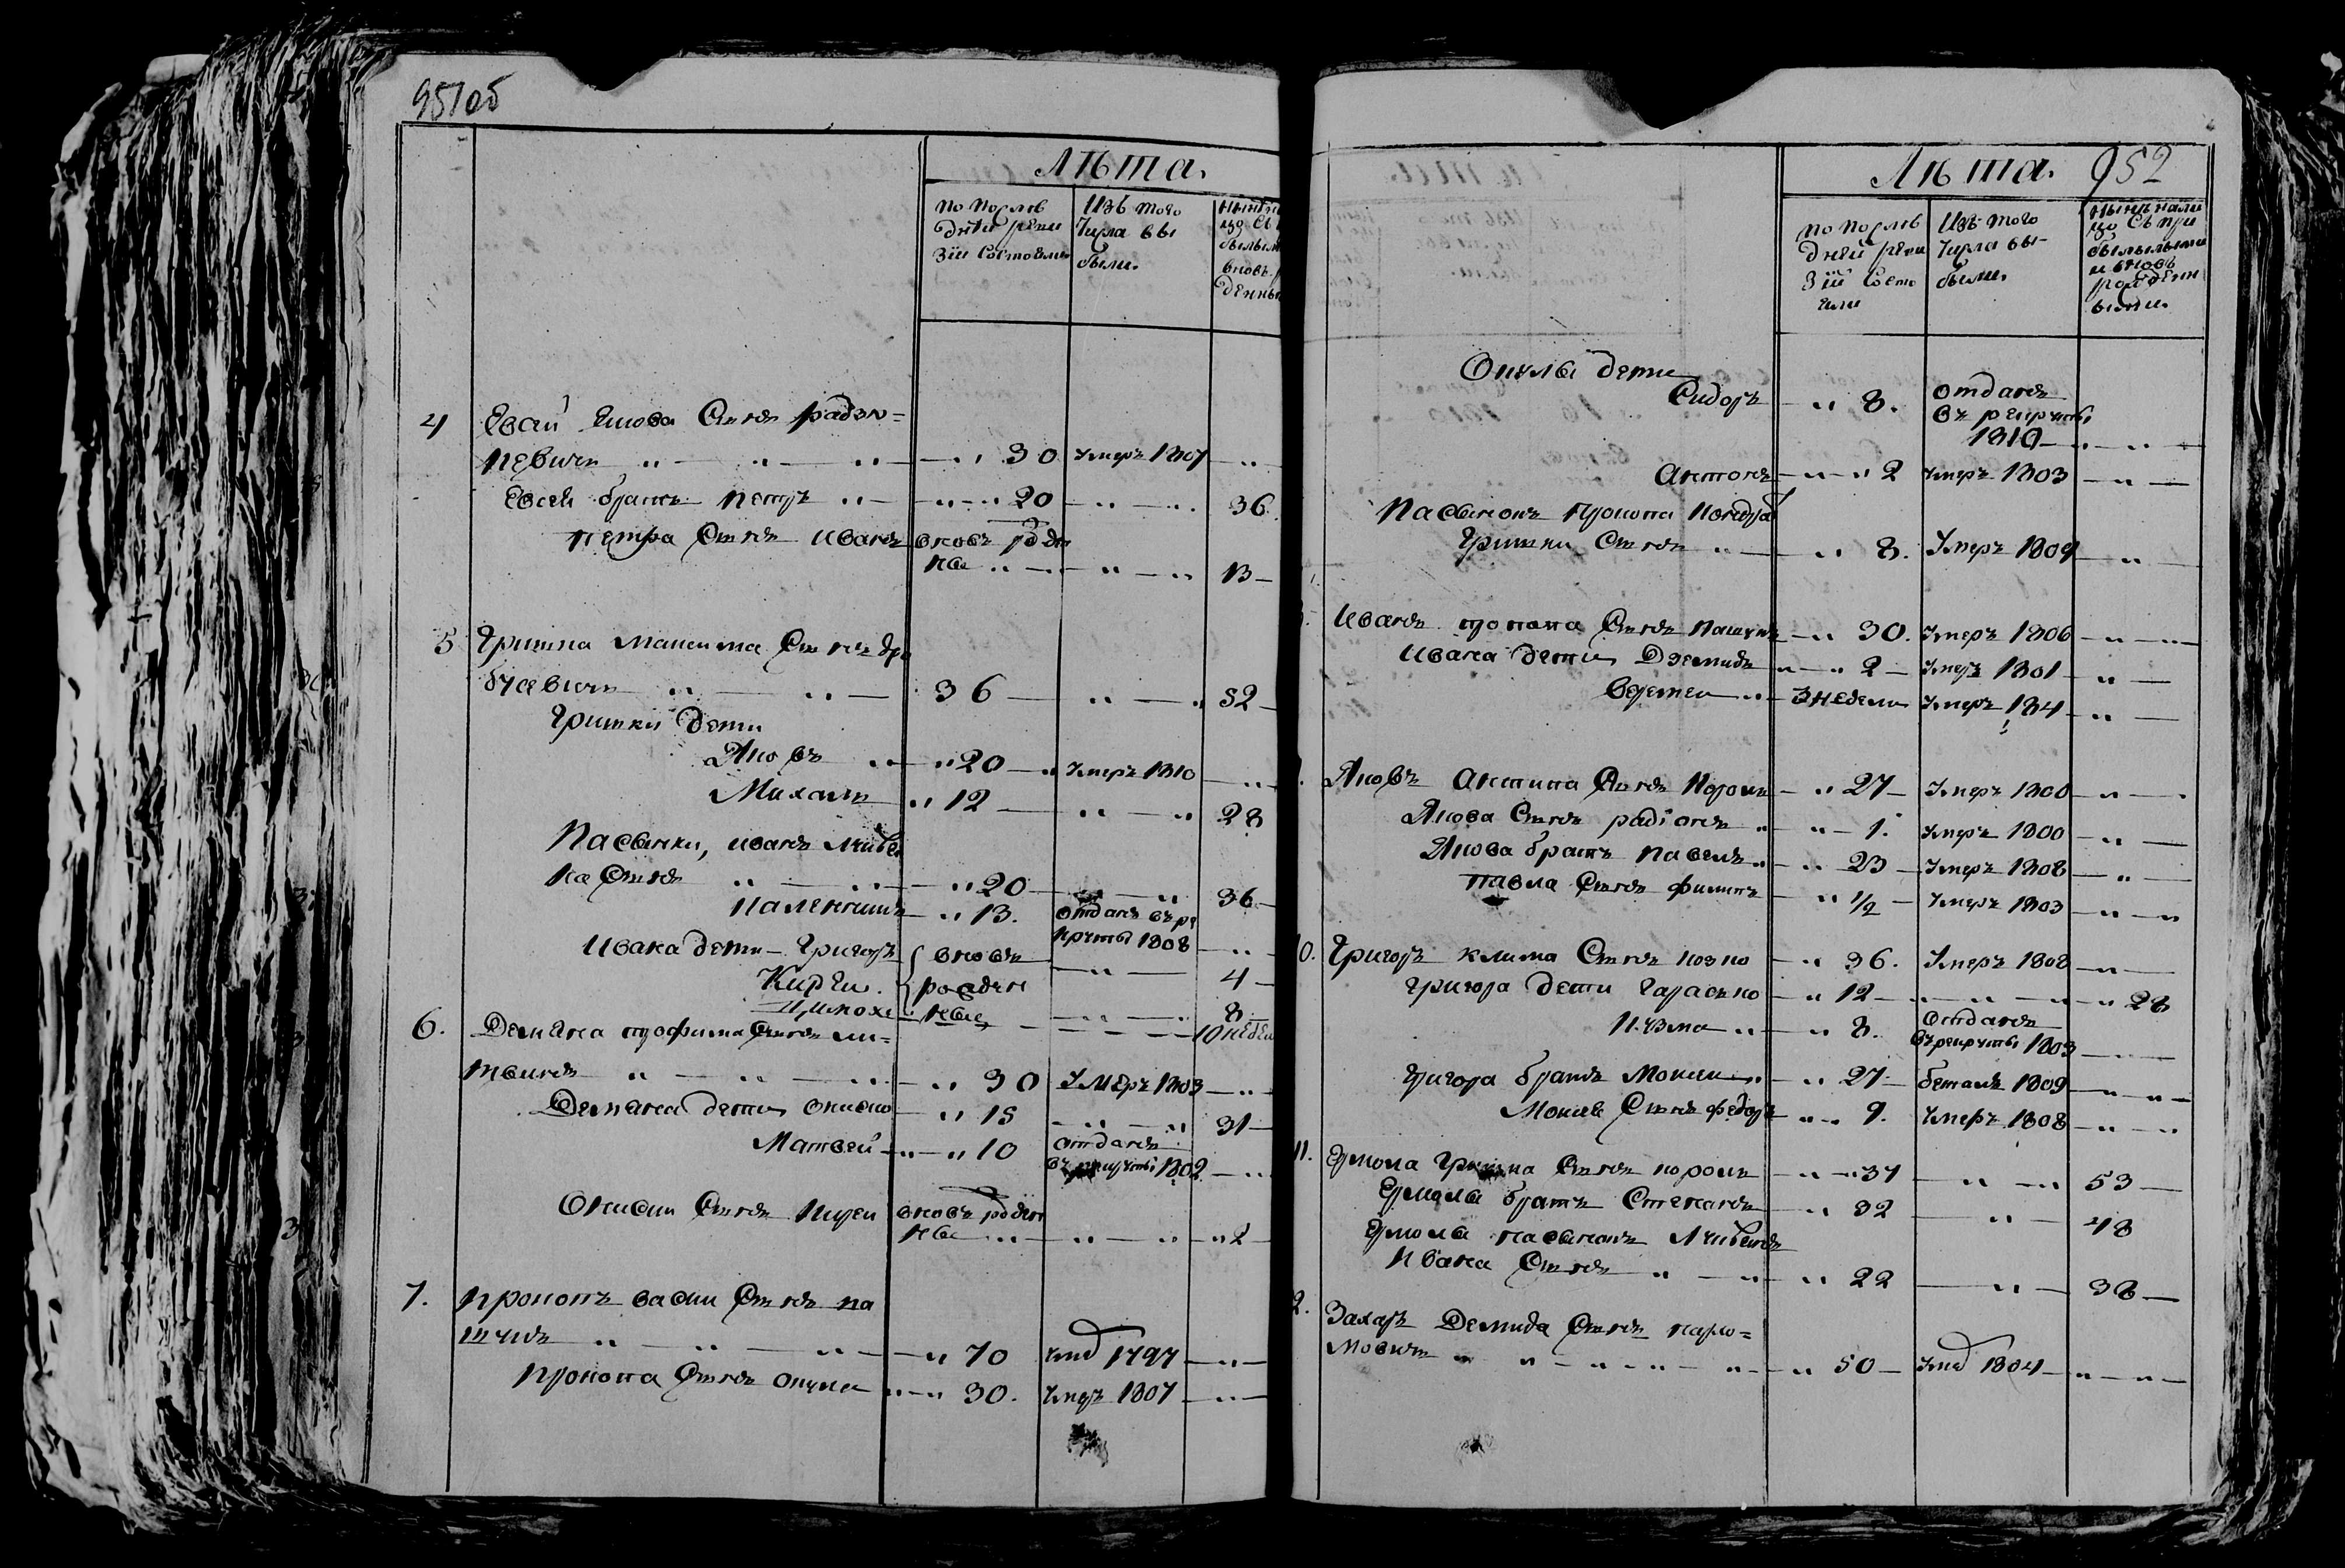 951об
Лѣта.
по послѣ
дней реви
зіи состояли
Изъ того
числа вы
были.
4 Евсей Якова Сынъ радзю=
кевичъ " — " — " — " 30 умеръ 1807 — "
Евсея братъ петръ " — " — " 20 — " — " 36.
петра Сынъ иванъ вновь
" — " — " 13 —
5 Гришка максима Сынъ
" — " — 36 — " — " 52 —
Гришки дети
Яковъ " — " 20 — " умеръ 1810 — "
Михаилъ " 12 — " — " 28
Пасынки, иванъ
Сынъ " — " — " 20 — " — " 36 —
" 13. отданъ въ ре
круты 1808 — "
Ивана дети — Григоръ вновь — " — 4 —
" — " 8
10 недель
6. Демьяна трофима Сынъ ли=
твинъ " — " — " — " 30 умеръ 1803 — "
Демьяна дети ониско " 15 — " — " 31 —
Матвей — " — " 10 отданъ
въ рекруты 1802 — "
Ониски Сынъ вновь
" — " — " — " 2 —
7. прокопъ васки Сынъ па
шукъ " — " — " — " 70 умеръ 1797 — " —
прокопа Сынъ окула " — " 30. умеръ 1807 — " —
Лѣта. 952
по послѣ
дней реви
зіи состо
яли
Изъ того
числа вы-
были.
нынѣ нали
цо съ при
былыми
и вновь
рожденн
ыми.
Окулы дети
Сидоръ — " 8. отданъ
въ рекруты
1810 — " — "
антонъ — " — " 2 умеръ 1803 — " —
Пасынокъ Прокопа
Гришки Сынъ " — " 8. Умеръ 1809 — " —
Иванъ прокопа Сынъ пашукъ — " 30. Умеръ 1806 — " — "
Ивана дети Дземидъ " — " 2 — Умеръ 1801 — " —
" — 3 недели Умеръ — " —
Яковъ антипа Сынъ — " 27 — Умеръ — " —
Якова Сынъ радіонъ " — " — 1. Умеръ 1800 — " —
Якова братъ павелъ " — " 23 — Умеръ 1808 — " —
павла Сынъ филипъ — " 1/2 — Умеръ 1803 — " — "
10. Григоръ клима Сынъ козко — " 36. Умеръ 1808 — " —
Григора дети Гарасько — " 12 — " — " — " 28
Кузма " — " 8. отданъ
въ рекруты 1803 — " —
Григора братъ Мокей — " — " 27 — беталъ 1809 — " — "
Мокея Сынъ федоръ — " — " 9. Умеръ 1808 — " — "
11. Ермола Гришка Сынъ — " — " 37 — " — " 53 —
Ермолы братъ Степанъ — " 32 — " — 48
Ермолы пасынокъ
Ивана Сынъ " — " — " 22 — " — 38 —
Захаръ Демида Сынъ
мовичъ " — " — " — " — " 50 — умеръ 1804 — " — " —